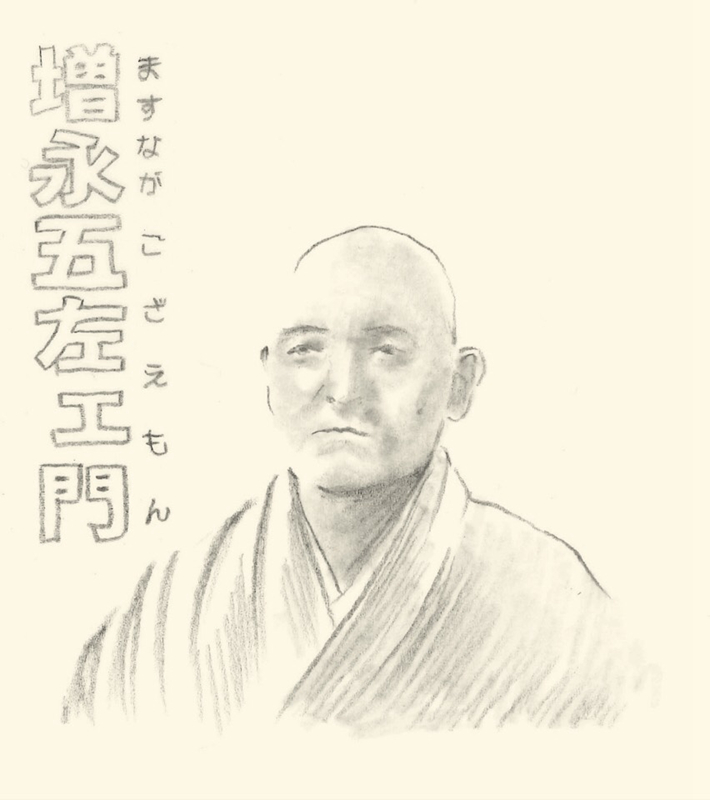 増永五左エ門
ますなが ござえもん